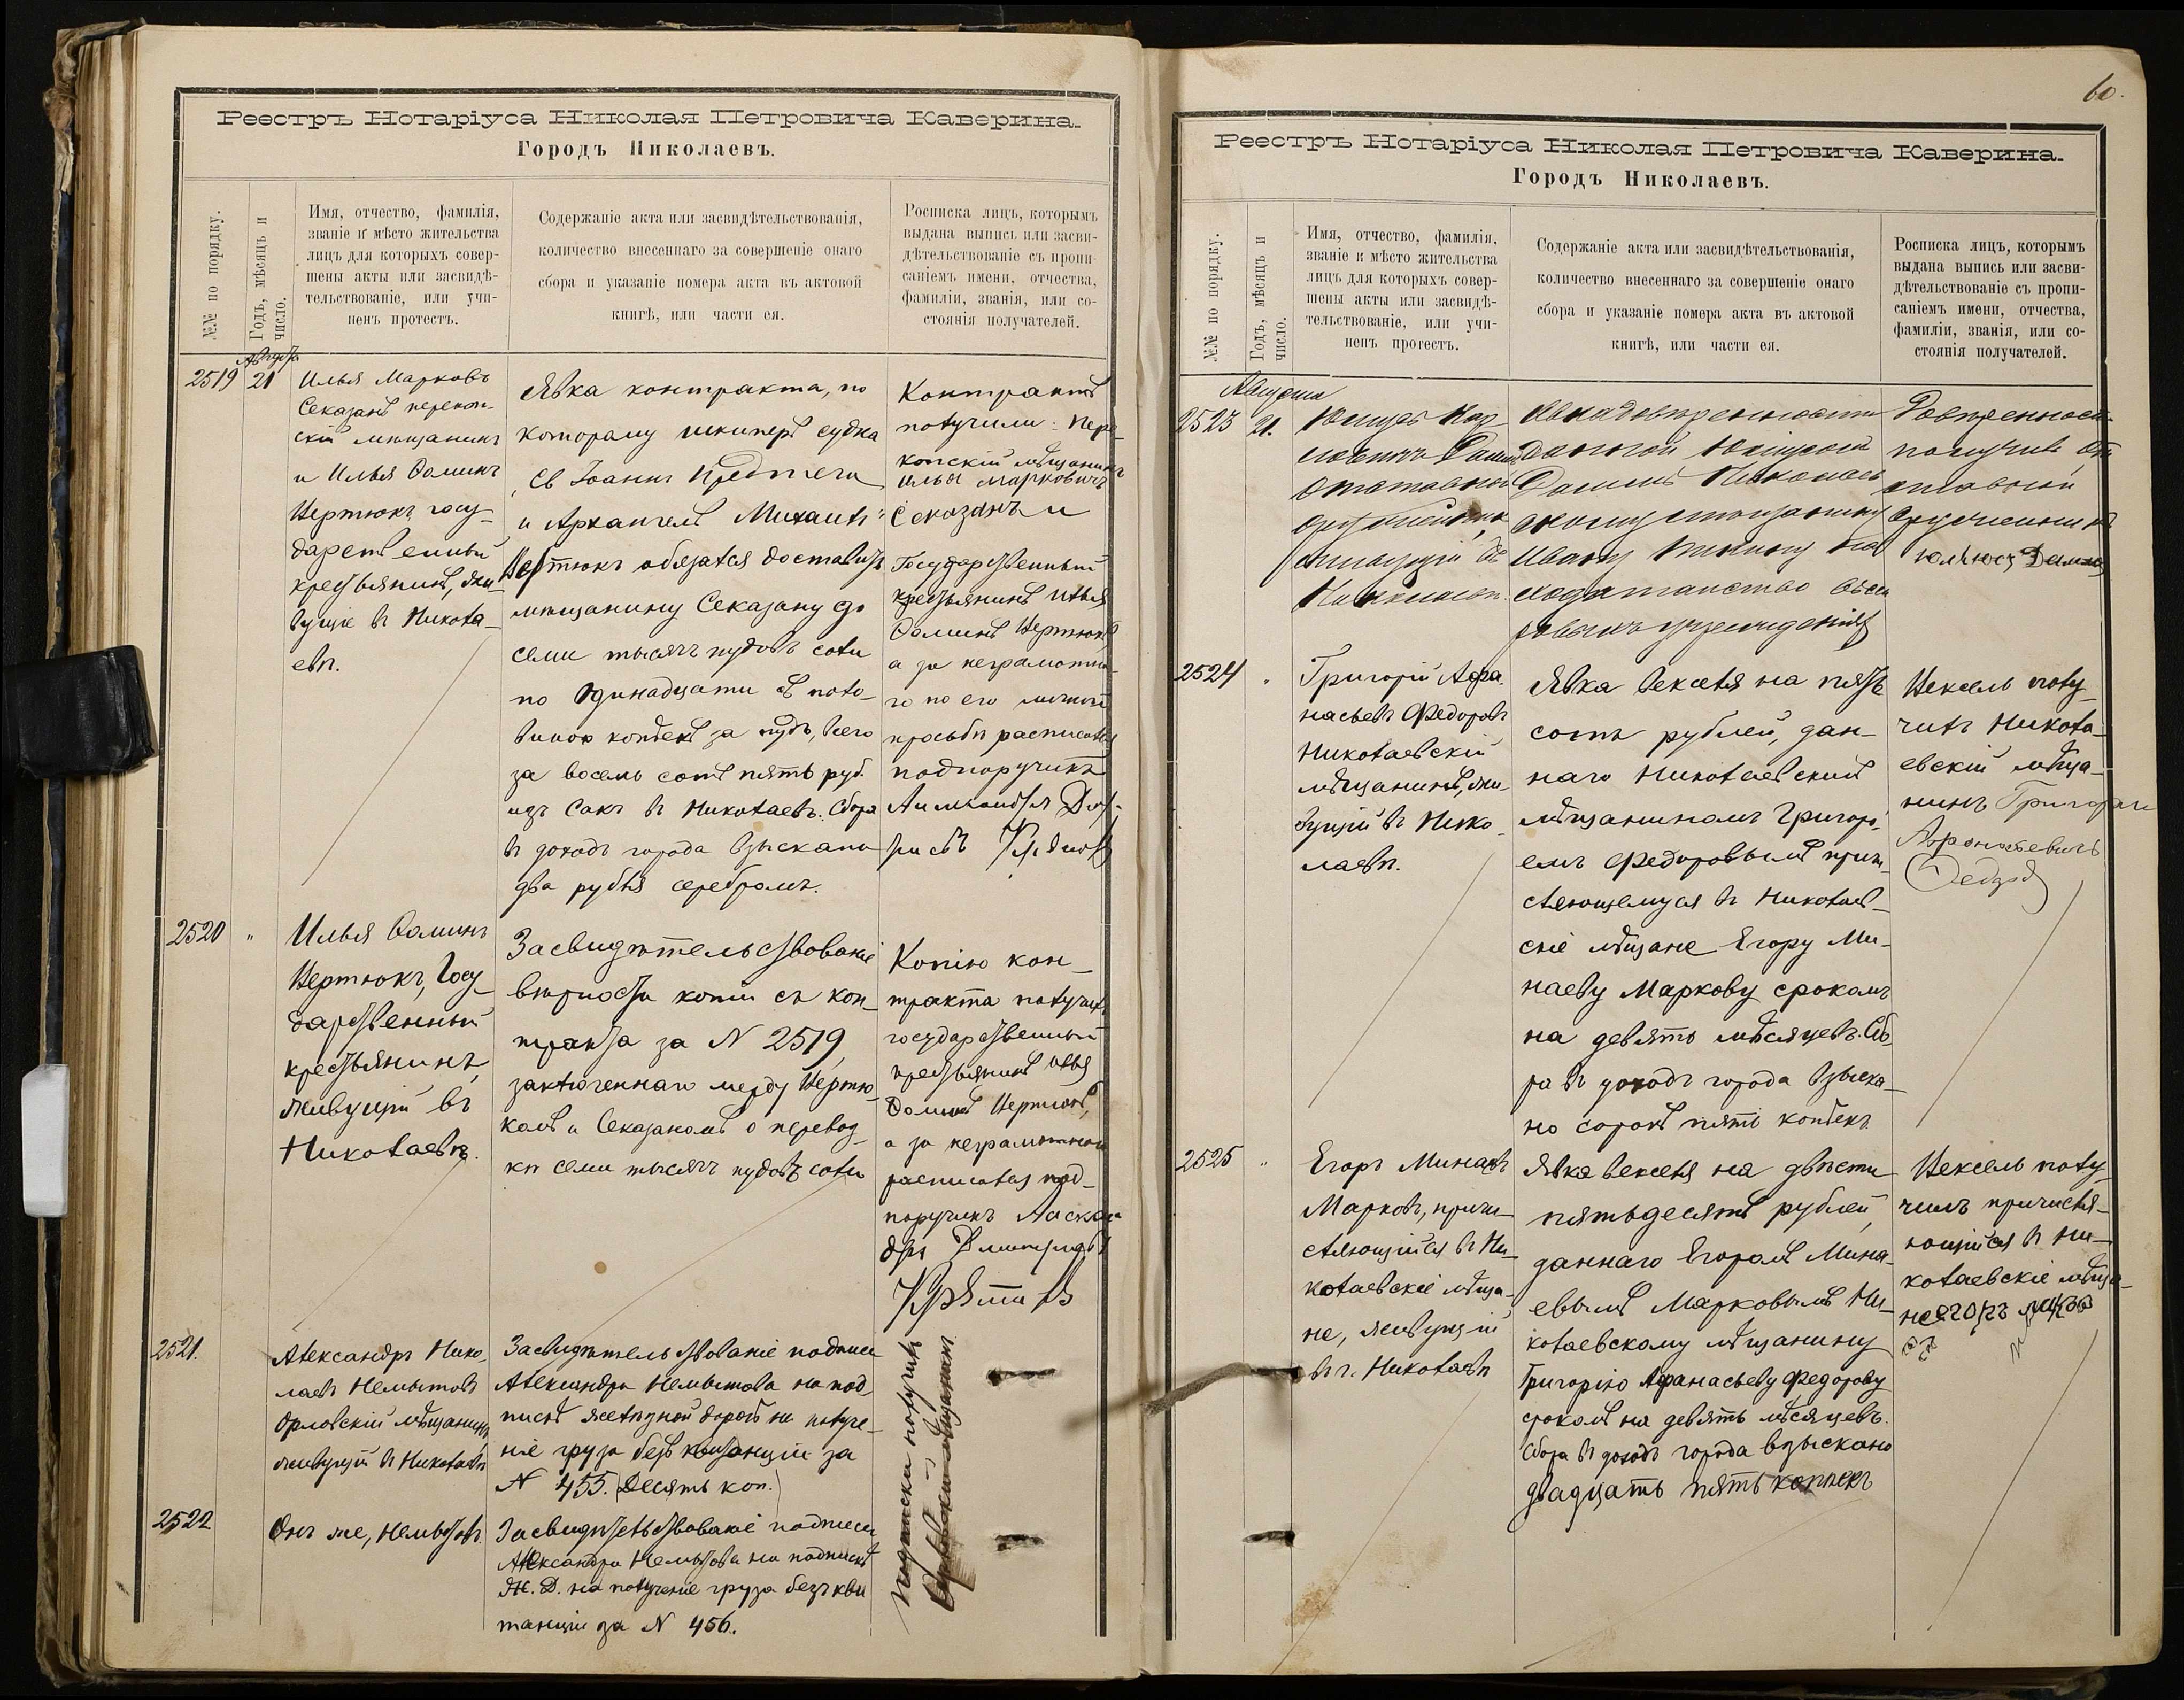 Реестръ Нотаріуса Николая Петровича Каверина.
Городъ Николаевъ.
№№ по порядку.
Годъ, мѣсяцъ и
число.
Имя, отчество, фамилія,
званіе и мѣсто жительства
лицъ для которыхъ совер-
шены акты или засвидѣ-
тельствованіе, или учи-
ненъ протестъ.
Содержаніе акта или засвидѣтельствованія,
количество внесеннаго за совершеніе онаго
сбора и указаніе номера акта въ актовой
книгѣ, или части ея.
Росписка лицъ, которымъ
выдана выпись или засви-
дѣтельствованіе съ пропи-
саніемъ имени, отчества,
фамиліи, званія, или со-
стоянія получателей.
2519
Августа
21
Илья Марковъ
Секазанъ перекоп-
скій мѣщанинъ
и Илья Ѳоминъ
Чертюкъ госу-
дарственный
крестьянинъ, жи-
вущіе въ Никола-
евѣ.
Явка контракта, по
которому шкиперъ судна
Св Іоаннъ Предтеча
и Архангелъ Михаилъ
Чертюкъ обязался доставить
мѣщанину Секазану до
семи тысячъ пудовъ соли
по одинадцати съ поло-
виною копѣекъ за пудъ, всего
за восемь сотъ пять руб.
изъ Сакъ въ Николаевъ. Сбора
въ доходъ города взыскано
два рубля серебромъ.
Контрактъ
получили: Пере-
копскій мѣщанинъ
Илья Марковичъ
Секазанъ и
Государственный
крестьянинъ Илья
Ѳоминъ Чертюкъ
а за неграмотна-
го по его личной
просьбѣ расписался
подпоручикъ
2520
"
Илья Ѳоминъ
Чертюкъ, Госу-
дарственный
крестьянинъ,
живущій въ
Николаевѣ.
Засвидѣтельствованіе
вѣрности копіи съ кон-
тракта за N 2519,
заключеннаго между Чертю-
комъ и Секазаномъ о перевоз-
кѣ семи тысячъ пудовъ соли
Копію кон-
тракта получилъ
государственный
крестьянинъ Илья
Ѳоминъ Чертюкъ,
а за неграмотнаго
расписался под-
поручикъ
2521.
Александръ Нико-
лаевъ Немытовъ
Орловскій мѣщанинъ,
живущій въ Николаевѣ
Засвидѣтельствованіе подписи
Александра Немытова на под-
пискѣ желѣзной дорогѣ на получе-
ніе груза безъ квитанціи за
N 455. (Десять коп.)
2522
Онъ же, Немытовъ.
Засвидѣтельствованіе подписи
Александра Немытова на подпискѣ
Ж. Д. на полученіе груза безъ кви
танціи за N 456.
Подписки получилъ
Орловскій мѣщанинъ
60.
Реестръ Нотаріуса Николая Петровича Каверина.
Городъ Николаевъ.
№№ по порядку.
Годъ, мѣсяцъ и
число.
Имя, отчество, фамилія,
званіе и мѣсто жительства
лицъ для которыхъ совер-
шены акты или засвидѣ-
тельствованіе, или учи-
ненъ протестъ.
Содержаніе акта или засвидѣтельствованія,
количество внесеннаго за совершеніе онаго
сбора и указаніе номера акта въ актовой
книгѣ, или части ея.
Росписка лицъ, которымъ
выдана выпись или засви-
дѣтельствованіе съ пропи-
саніемъ имени, отчества,
фамиліи, званія, или со-
стоянія получателей.
Августа
2523
21.
Явка довѣренности
данной
скому мѣщанину
Ивану на
ходатайство
Довѣренность
получилъ От
ставной
2524
"
Григорій Афа-
насьевъ Федоровъ
Николаевскій
мѣщанинъ, жи-
вущій въ Нико-
лаевѣ.
Явка векселя на пять
сотъ рублей, дан-
наго Николаевскимъ
мѣщаниномъ Григорі-
емъ Федоровымъ причи-
сляющемуся въ Николаев-
скіе мѣщане Егору Ми-
наеву Маркову срокомъ
на девять мѣсяцевъ. Сбо-
ра въ доходъ города взыска-
но сорокъ пять копѣекъ
Вексель полу-
чилъ Никола-
евскій мѣща-
нинъ Григорій
2525
"
Егоръ Минаевъ
Марковъ, причи-
сляющійся въ Ни-
колаевскіе мѣща-
не, живущій
въ г. Николаевѣ
Явка векселя на двѣсти
пятьдесятъ рублей,
даннаго Егоромъ Мина-
евымъ Марковымъ Ни-
колаевскому мѣщанину
Григорію Афанасьеву Федорову
срокомъ на девять мѣсяцевъ.
Сбора въ доходъ города взыскано
двадцать пять копѣекъ
Вексель полу-
чилъ причисля-
ющійся въ Ни-
колаевскіе мѣща-
не